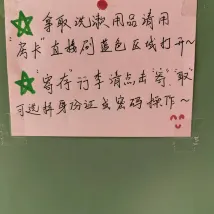 拿取洗漱用品请用
"房卡"直接刷蓝色区域打开~
"寄存"行李请点击"寄""取"
可选择身份证或密码操作~